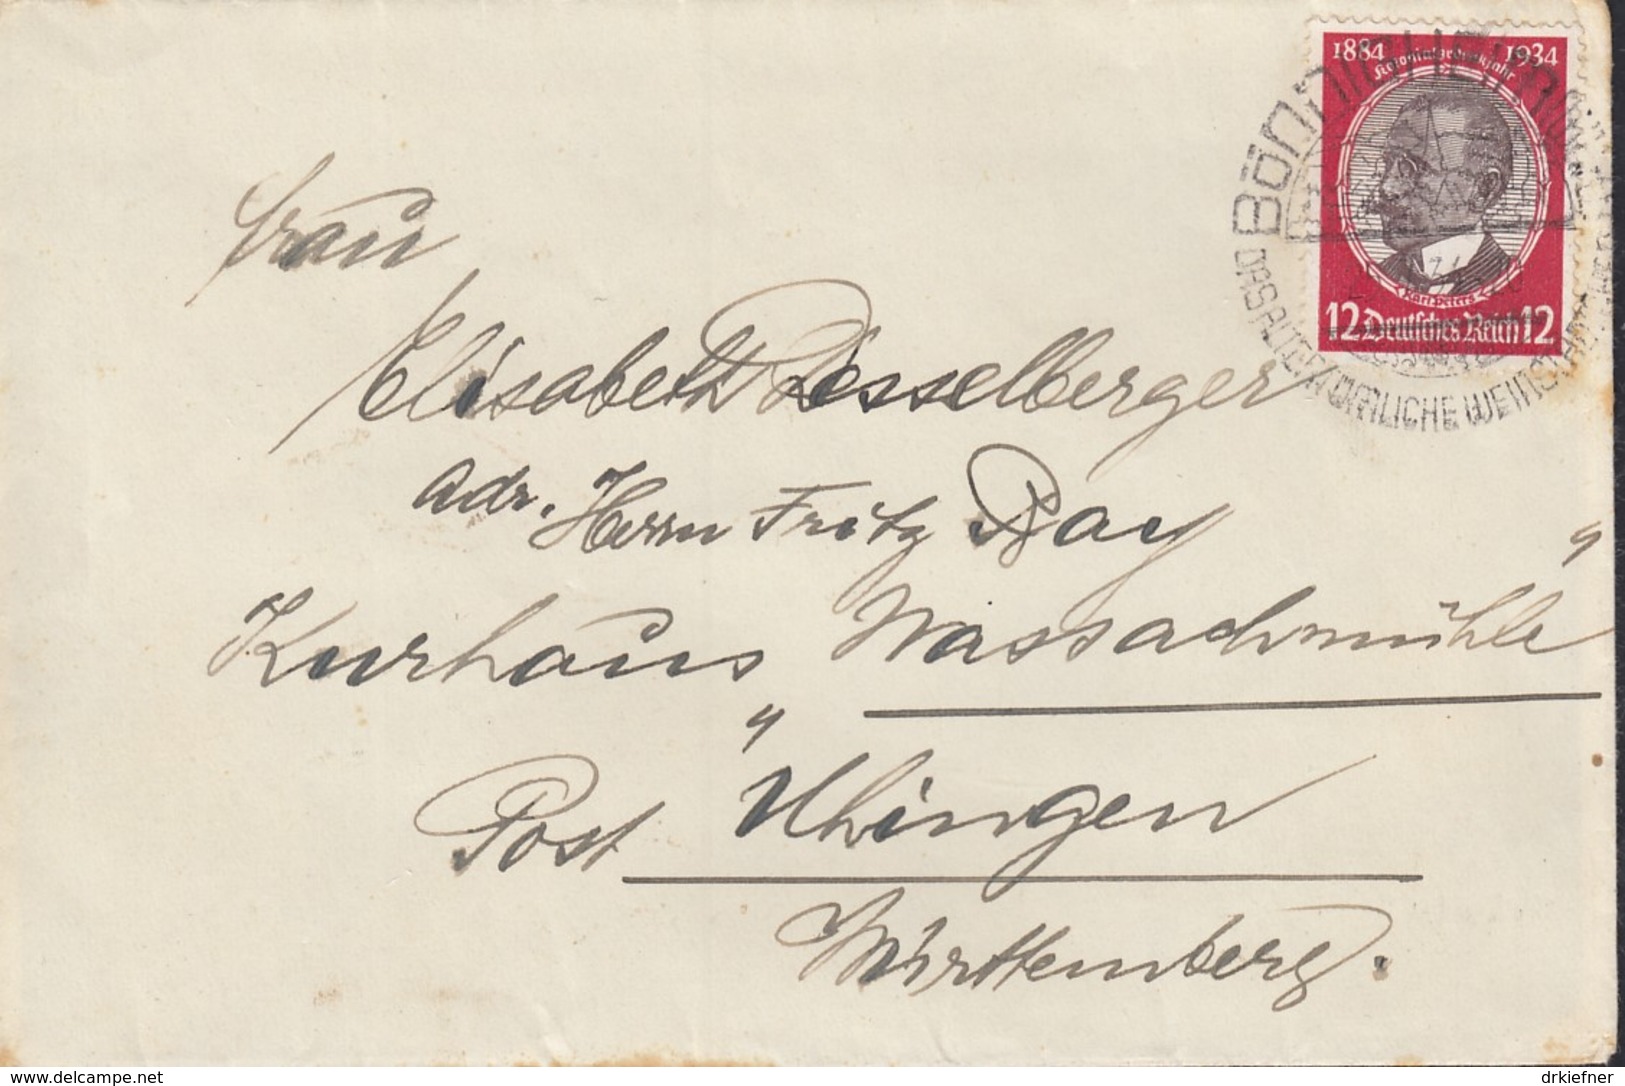 1884 1934
Kolonialgedenkjahr
Karl Peters
12 Deutsches Reich 12
BÖNNIGHEIM
DAS ALTERTÜMLICHE WEINSTÄDTCHEN
Frau
Elisabeth Desselberger
adr. Herrn Fritz Ray
Kurhaus „Wassachmühle"
Post „Uhingen
Württemberg.
www.delcampe.net
drkiefner